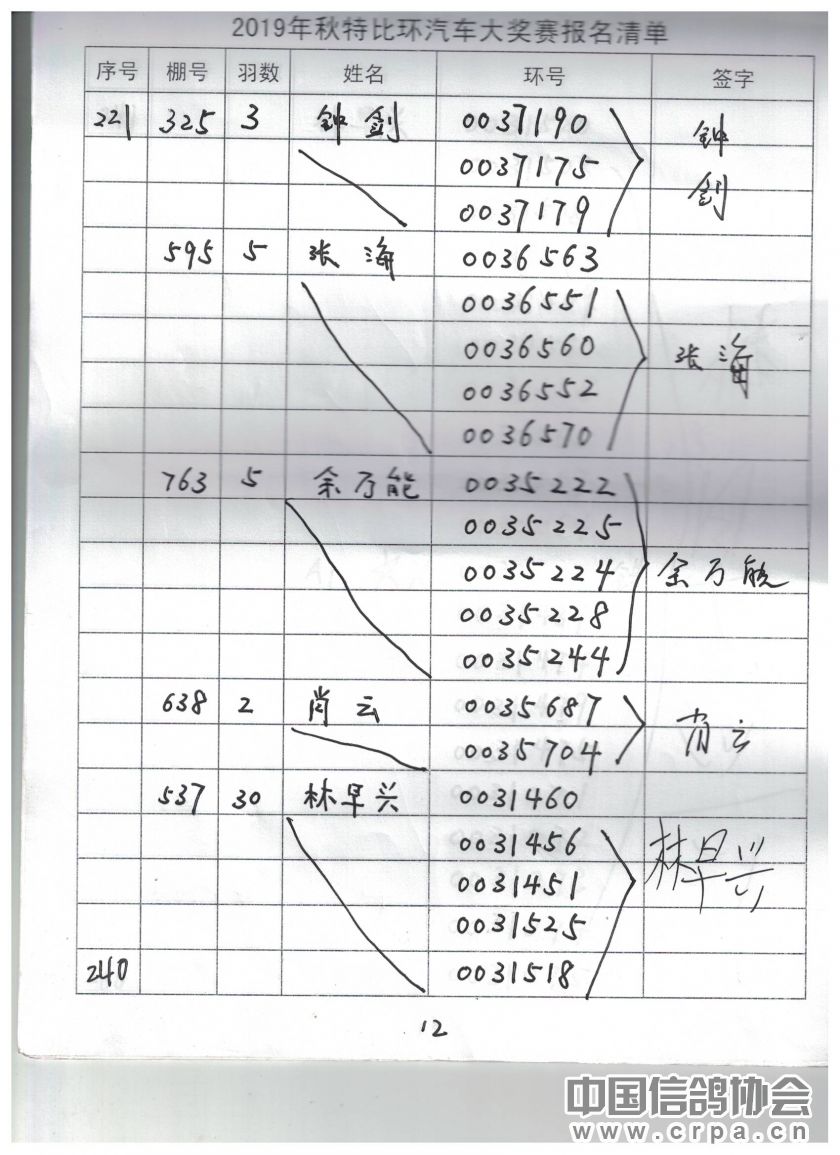 2019年秋特比环汽车大奖赛报名清单
序号 棚号 羽数 姓名 环号 签字
221 325 3 钟剑 0037190 钟剑
0037175
0037179
595 5 张海 0036563
0036551
0036560 张海
0036552
0036570
763 5 余万能 0035222
0035225
0035224 余万能
0035228
0035244
638 2 肖云 0035687 肖云
0035704
537 30 林早兴 0031460
0031456
0031451 林早兴
0031525
240 0031518
12
中国信鸽协会
www.crpa.cn